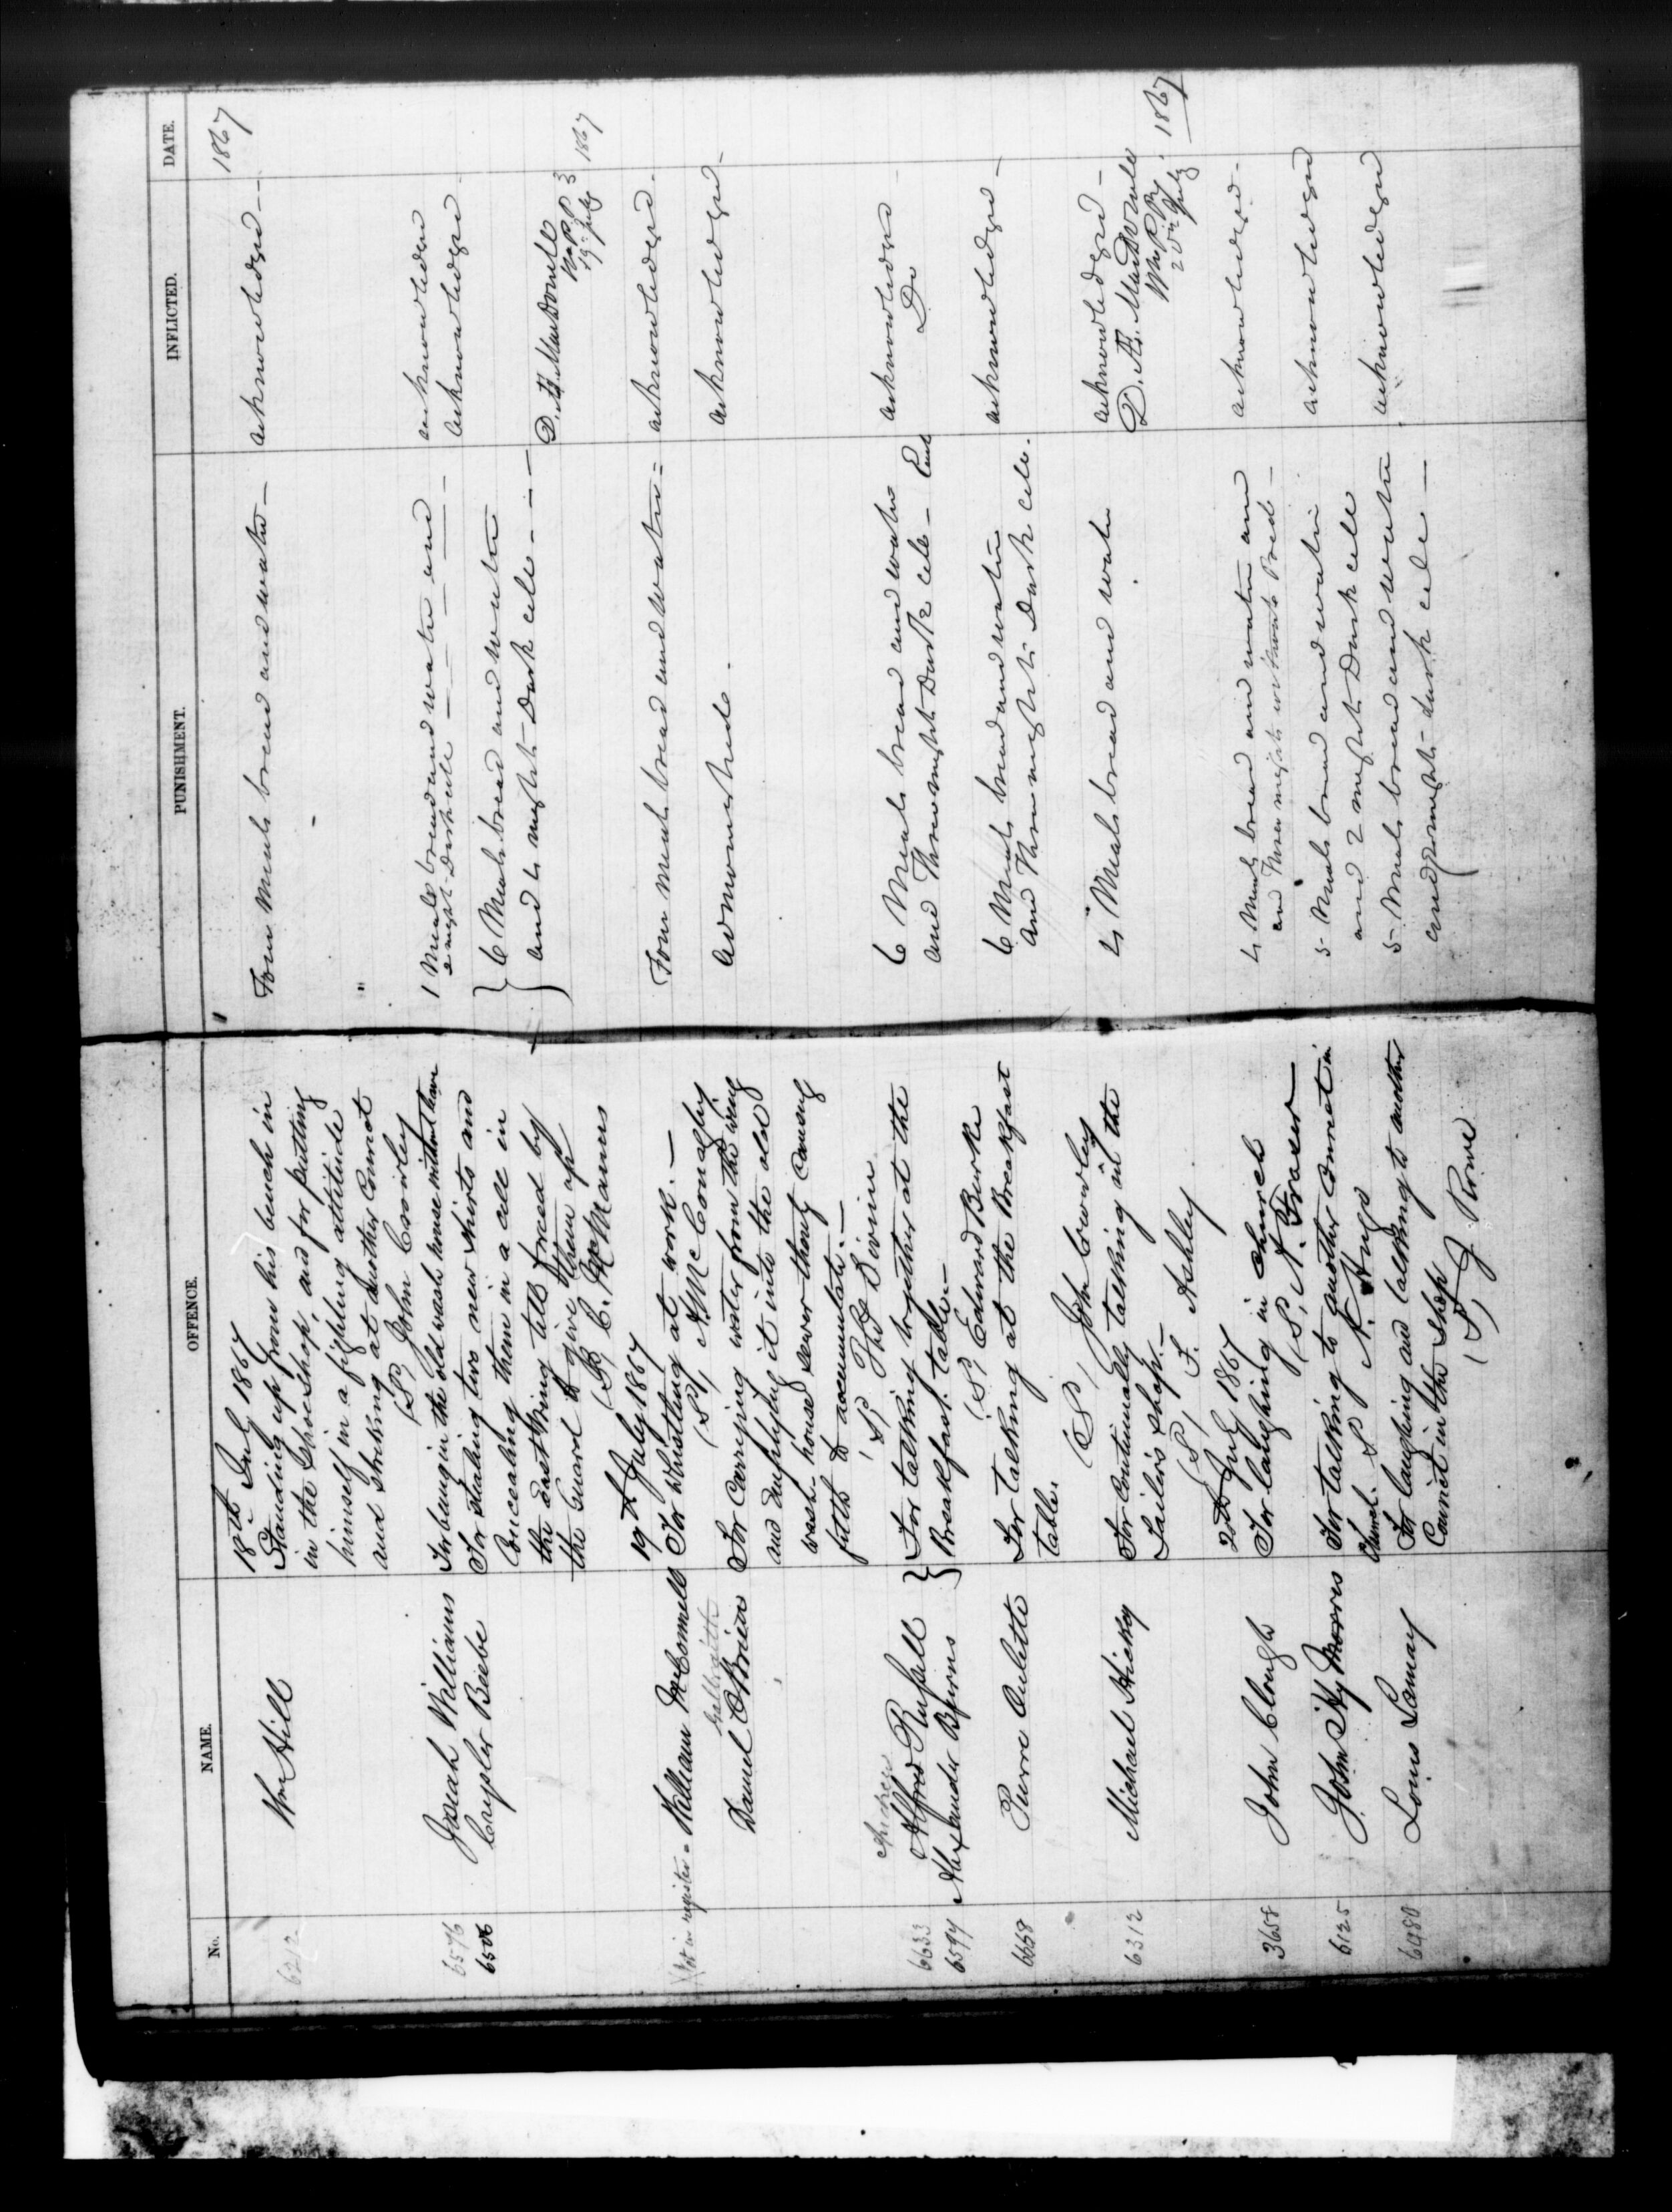 No. NAME. OFFENCE. PUNISHMENT. INFLICTED. DATE.
18th July 1867 1867
6212 Wm Hill Standing up from his bench in Four Meals bread and water— acknowledged—
in the Shoe shop, and for putting
himself in a fighting attitude "
and striking at another Convict
(S) John Crowley
6576 Josiah Williams For being in the old wash house without leave 1 Meals bread and water and acknowledged
night Dark cell
Crysler Beebe For stealing two new shirts and 6 Meals bread and water acknowledged
Concealing them in a cell in and 4 nights Dark cell
the East Wing till forced by
the Guard to give them up D. Æ. MacDonell
(S) C. McManus 19th July 1867
19th July 1867
Not in register = William McConnell For Whistling at work.— Four Meals bread and water= acknowledged.
Galbraith (S) A McConaghy
Daniel O'Brien For Carrying water from the wing admonished. acknowledged—
and emptying it into the old
wash-house sewer thereby causing
filth to accumulate.—
(S) Thos Divine
Andrew
6633 Alfred Russell For talking together at the 6 Meals bread and water acknowledged
6594 Alexander Burns Breakfast table.— and Three nights Dark cell— Do
(S) Edward Burke
6668 Pierre Oulette For talking at the Breakfast 6 Meals bread and water acknowledged—
table. and Three nights Dark cell.
(S) John Crowley
6312 Michael Hickey For Continually talking in the 4 Meals bread and water acknowledged—
Tailors shop.— D. Æ. MacDonell
(S) F. Ashley 20th July 1867
20th July 1867
3658 John Clough For laughing in Church 4 Meals bread and water and acknowledged.
(S) N. Fraser and Three nights without Bed—
6125 John Hy Morris For talking to another Convict in 5 Meals bread and water acknowledged
Church. S A. Hugo and 2 nights Dark cell
6480 Louis Lamay For laughing and talking to another 5 Meals bread and water acknowledged
Convict in the Shop and nights dark cell—
(S) J. Rowe